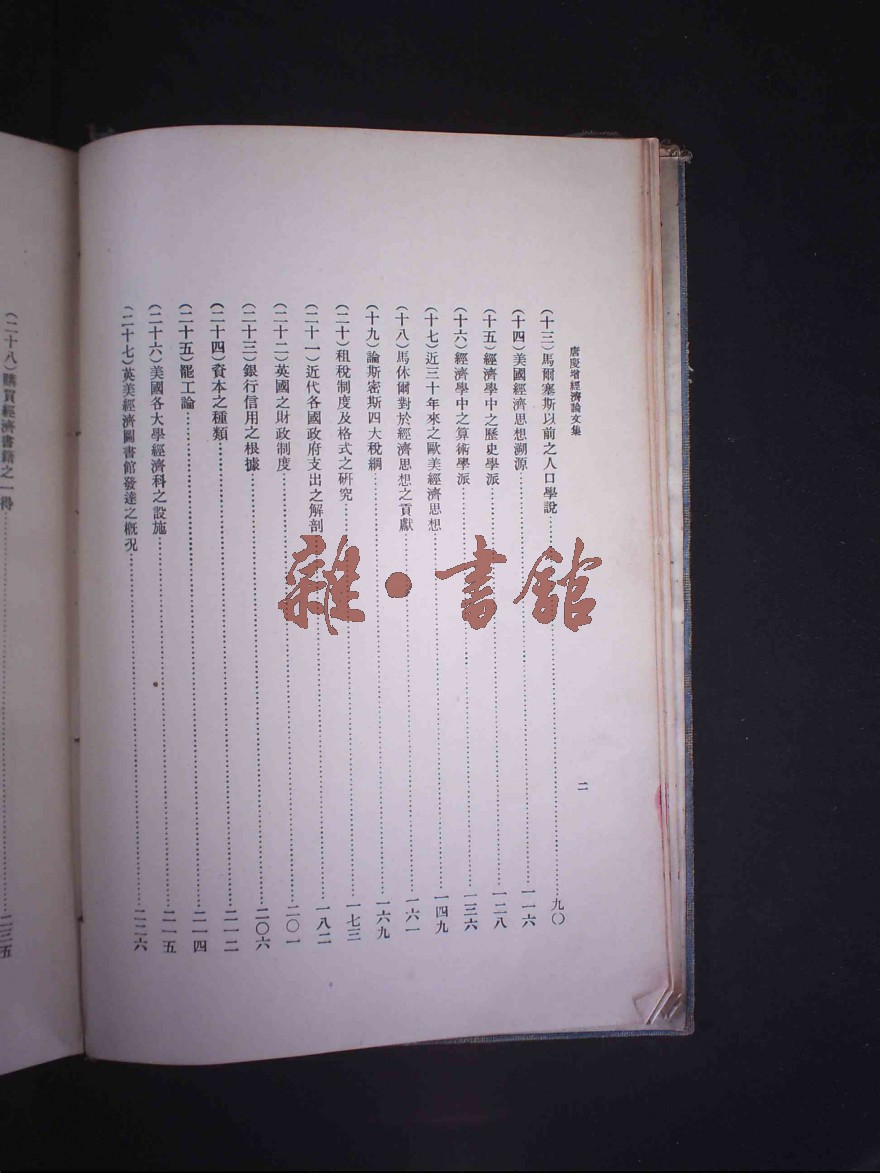 唐慶增經濟論文集
二
(十三)馬爾塞斯以前之人口學說……九〇
(十四)美國經濟思想溯源……一一六
(十五)經濟學中之歷史學派……一二八
(十六)經濟學中之算術學派……一三六
(十七)近三十年來之歐美經濟思想……一四九
(十八)馬休爾對於經濟思想之貢獻……一六一
(十九)論斯密斯四大稅綱……一六九
(二十)租稅制度及格式之研究……一七三
(二十一)近代各國政府支出之解剖……一八二
(二十二)英國之財政制度……二〇一
(二十三)銀行信用之根據……二〇六
(二十四)資本之種類……二一二
(二十五)罷工論……二一四
(二十六)美國各大學經濟科之設施……二一五
(二十七)英美經濟圖書館發達之概況……二二六
(二十八)購買經濟書籍之一得……二三五
雜·書館